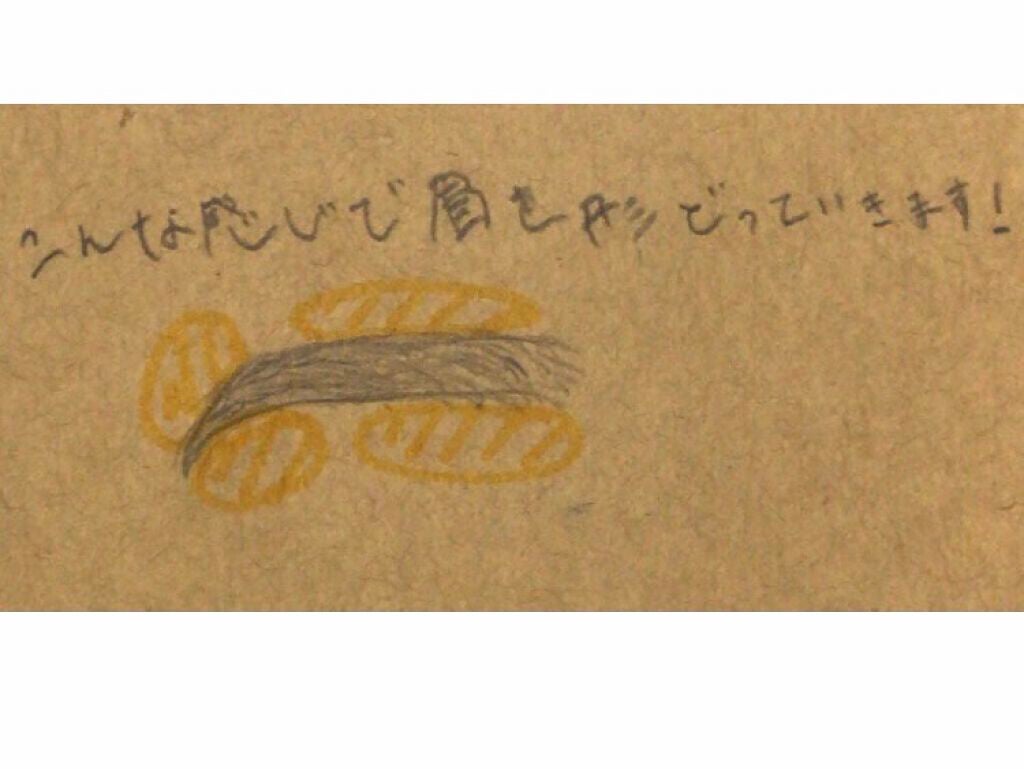 こんな感じで眉を形どっていきます!